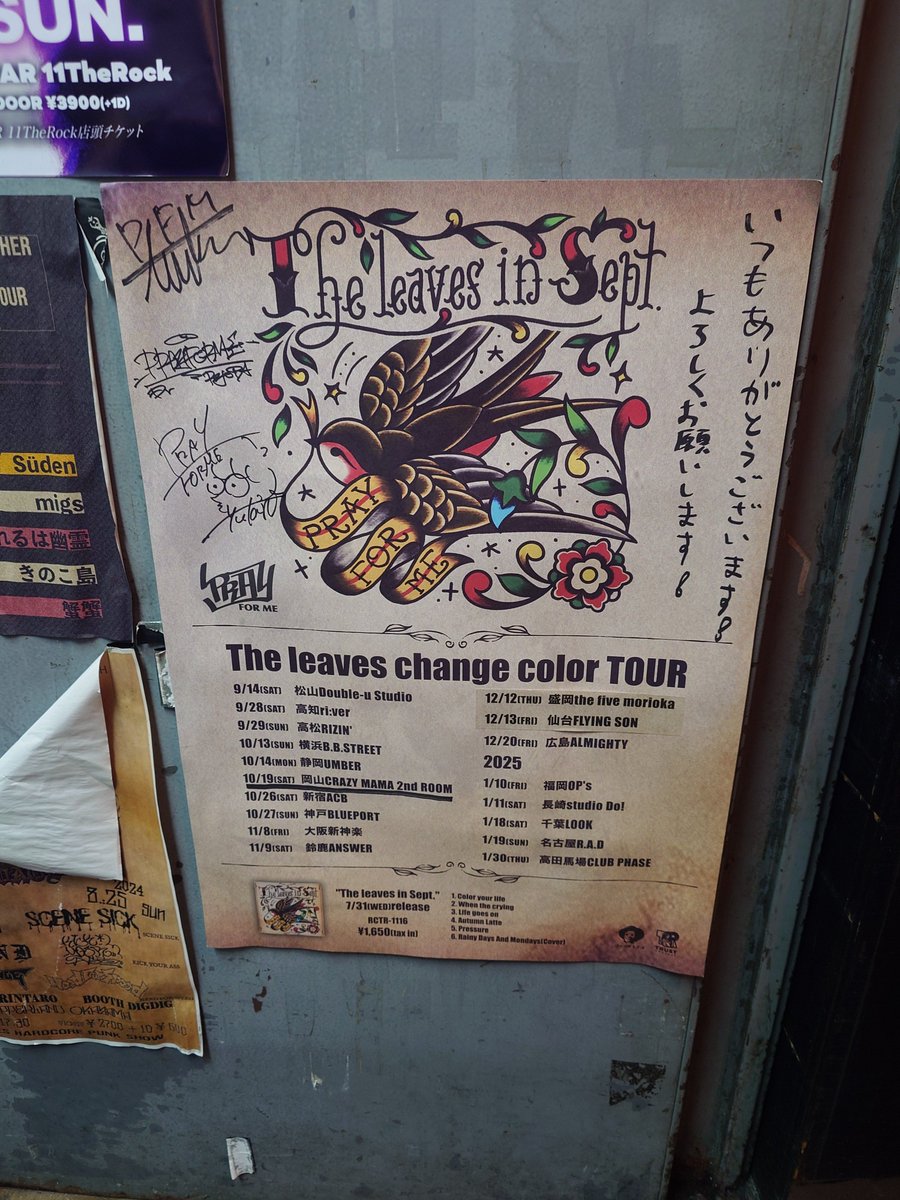 SUN.
AR 11TheRock
DOOR ¥3900(+1D)
R 11TheRock店頭チケット
HER
OUR
Süden
migs
れるは幽霊
きのこ島
蟹蟹
The leaves in Sept.
いつもありがとうございます!
よろしくお願いします!
PRAY
FORME
PRAY
FOR
ME
PRAY
FOR ME
The leaves change color TOUR
9/14(SAT) 松山Double-u Studio
9/28(SAT) 高知ri:ver
9/29(SUN) 高松RIZIN'
10/13(SUN) 横浜B.B.STREET
10/14(MON) 静岡UMBER
10/19(SAT) 岡山CRAZY MAMA 2nd ROOM
10/26(SAT) 新宿ACB
10/27(SUN) 神戸BLUEPORT
11/8(FRI) 大阪新神楽
11/9(SAT) 鈴鹿ANSWER
12/12(THU) 盛岡the five morioka
12/13(FRI) 仙台FLYING SON
12/20(FRI) 広島ALMIGHTY
2025
1/10(FRI) 福岡OP's
1/11(SAT) 長崎studio Do!
1/18(SAT) 千葉LOOK
1/19(SUN) 名古屋R.A.D
1/30(THU) 高田馬場CLUB PHASE
The leaves in Sept.
"The leaves in Sept."
7/31(WED)release
RCTR-1116
¥1,650(tax in)
1. Color your life
2. When the crying
3. Life goes on
4. Autumn Latte
5. Pressure
6. Rainy Days And Mondays(Cover)
TRUST
2024
8.25 SUN
SCENE SICK
SCENE SICK
KICK YOUR ASS
RINTARO BOOTH DIGDIG
OKAYAMA
17:30 ¥2700 + 1D ¥600
S HARDCORE PUNK SHOW